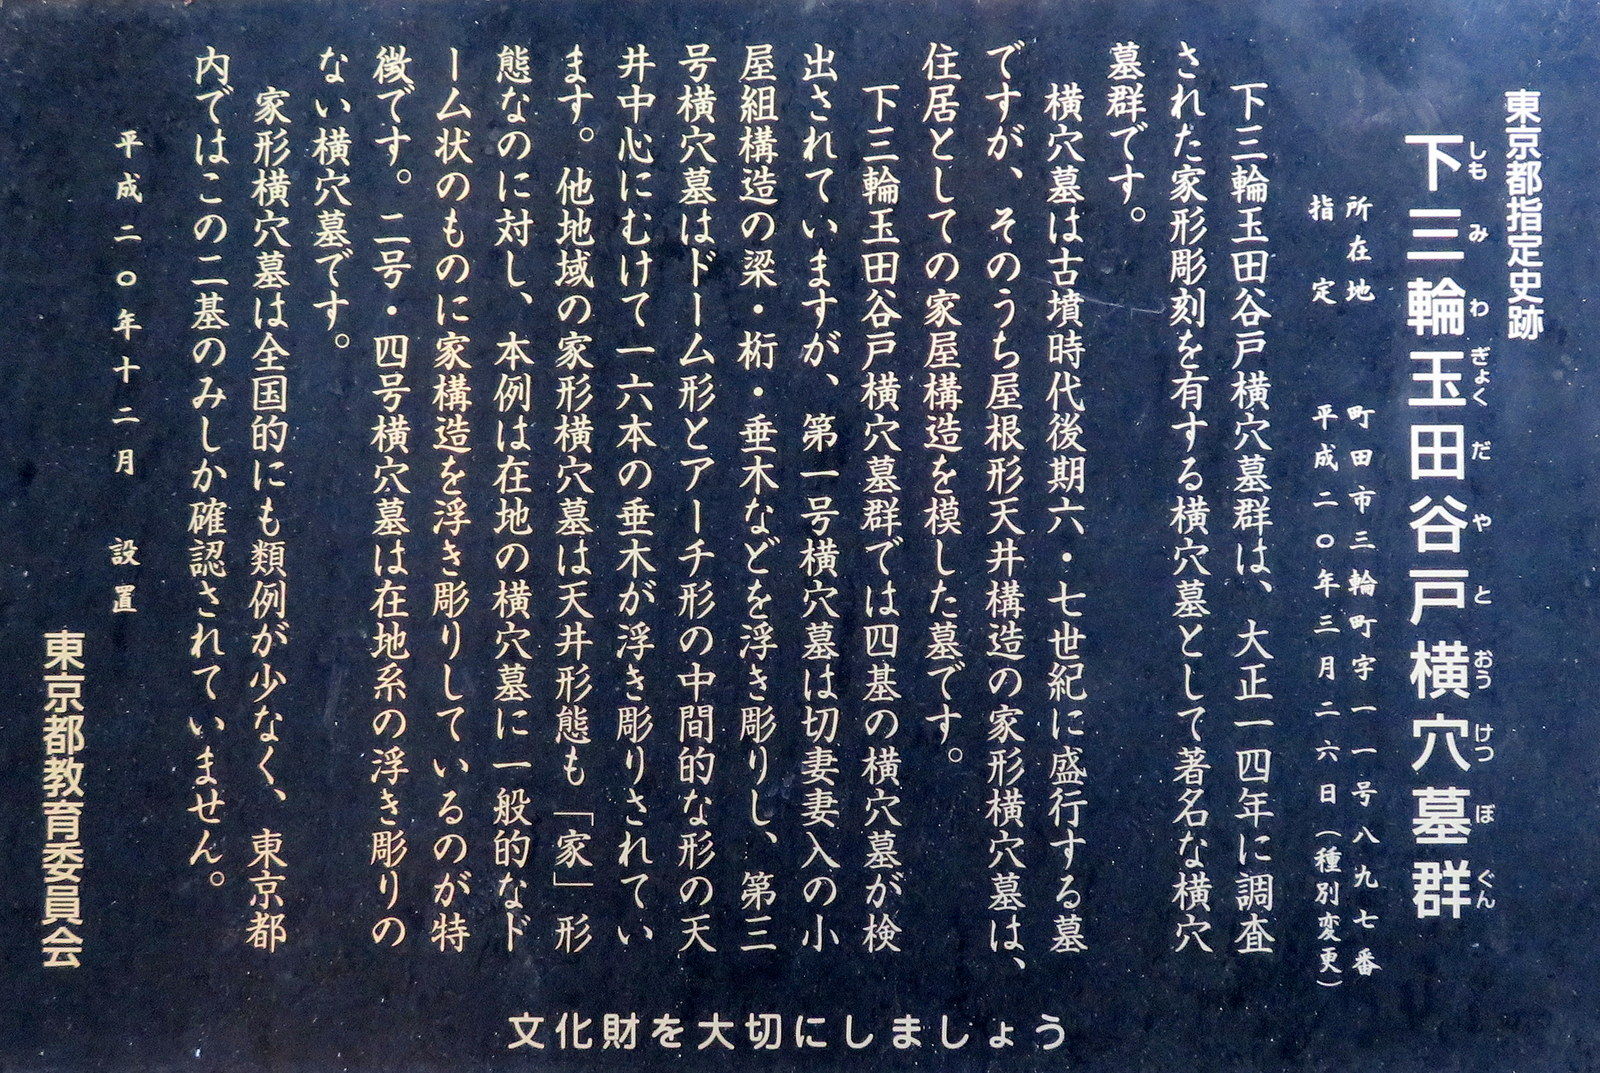 東京都指定史跡
下三輪玉田谷戸横穴墓群
しもみわぎょくだやとおうけつぼぐん
所在地 町田市三輪町字一一号八九七番
指定 平成二〇年三月二六日(種別変更)
下三輪玉田谷戸横穴墓群は、大正一四年に調査
された家形彫刻を有する横穴墓として著名な横穴
墓群です。
横穴墓は古墳時代後期六・七世紀に盛行する墓
ですが、そのうち屋根形天井構造の家形横穴墓は、
住居としての家屋構造を模した墓です。
下三輪玉田谷戸横穴墓群では四基の横穴墓が検
出されていますが、第一号横穴墓は切妻妻入の小
屋組構造の梁・桁・垂木などを浮き彫りし、第三
号横穴墓はドーム形とアーチ形の中間的な形の天
井中心にむけて一六本の垂木が浮き彫りされてい
ます。他地域の家形横穴墓は天井形態も「家」形
態なのに対し、本例は在地の横穴墓に一般的なド
ーム状のものに家構造を浮き彫りしているのが特
徴です。二号・四号横穴墓は在地系の浮き彫りの
ない横穴墓です。
家形横穴墓は全国的にも類例が少なく、東京都
内ではこの二基のみしか確認されていません。
平成二〇年十二月 設置
東京都教育委員会
文化財を大切にしましょう